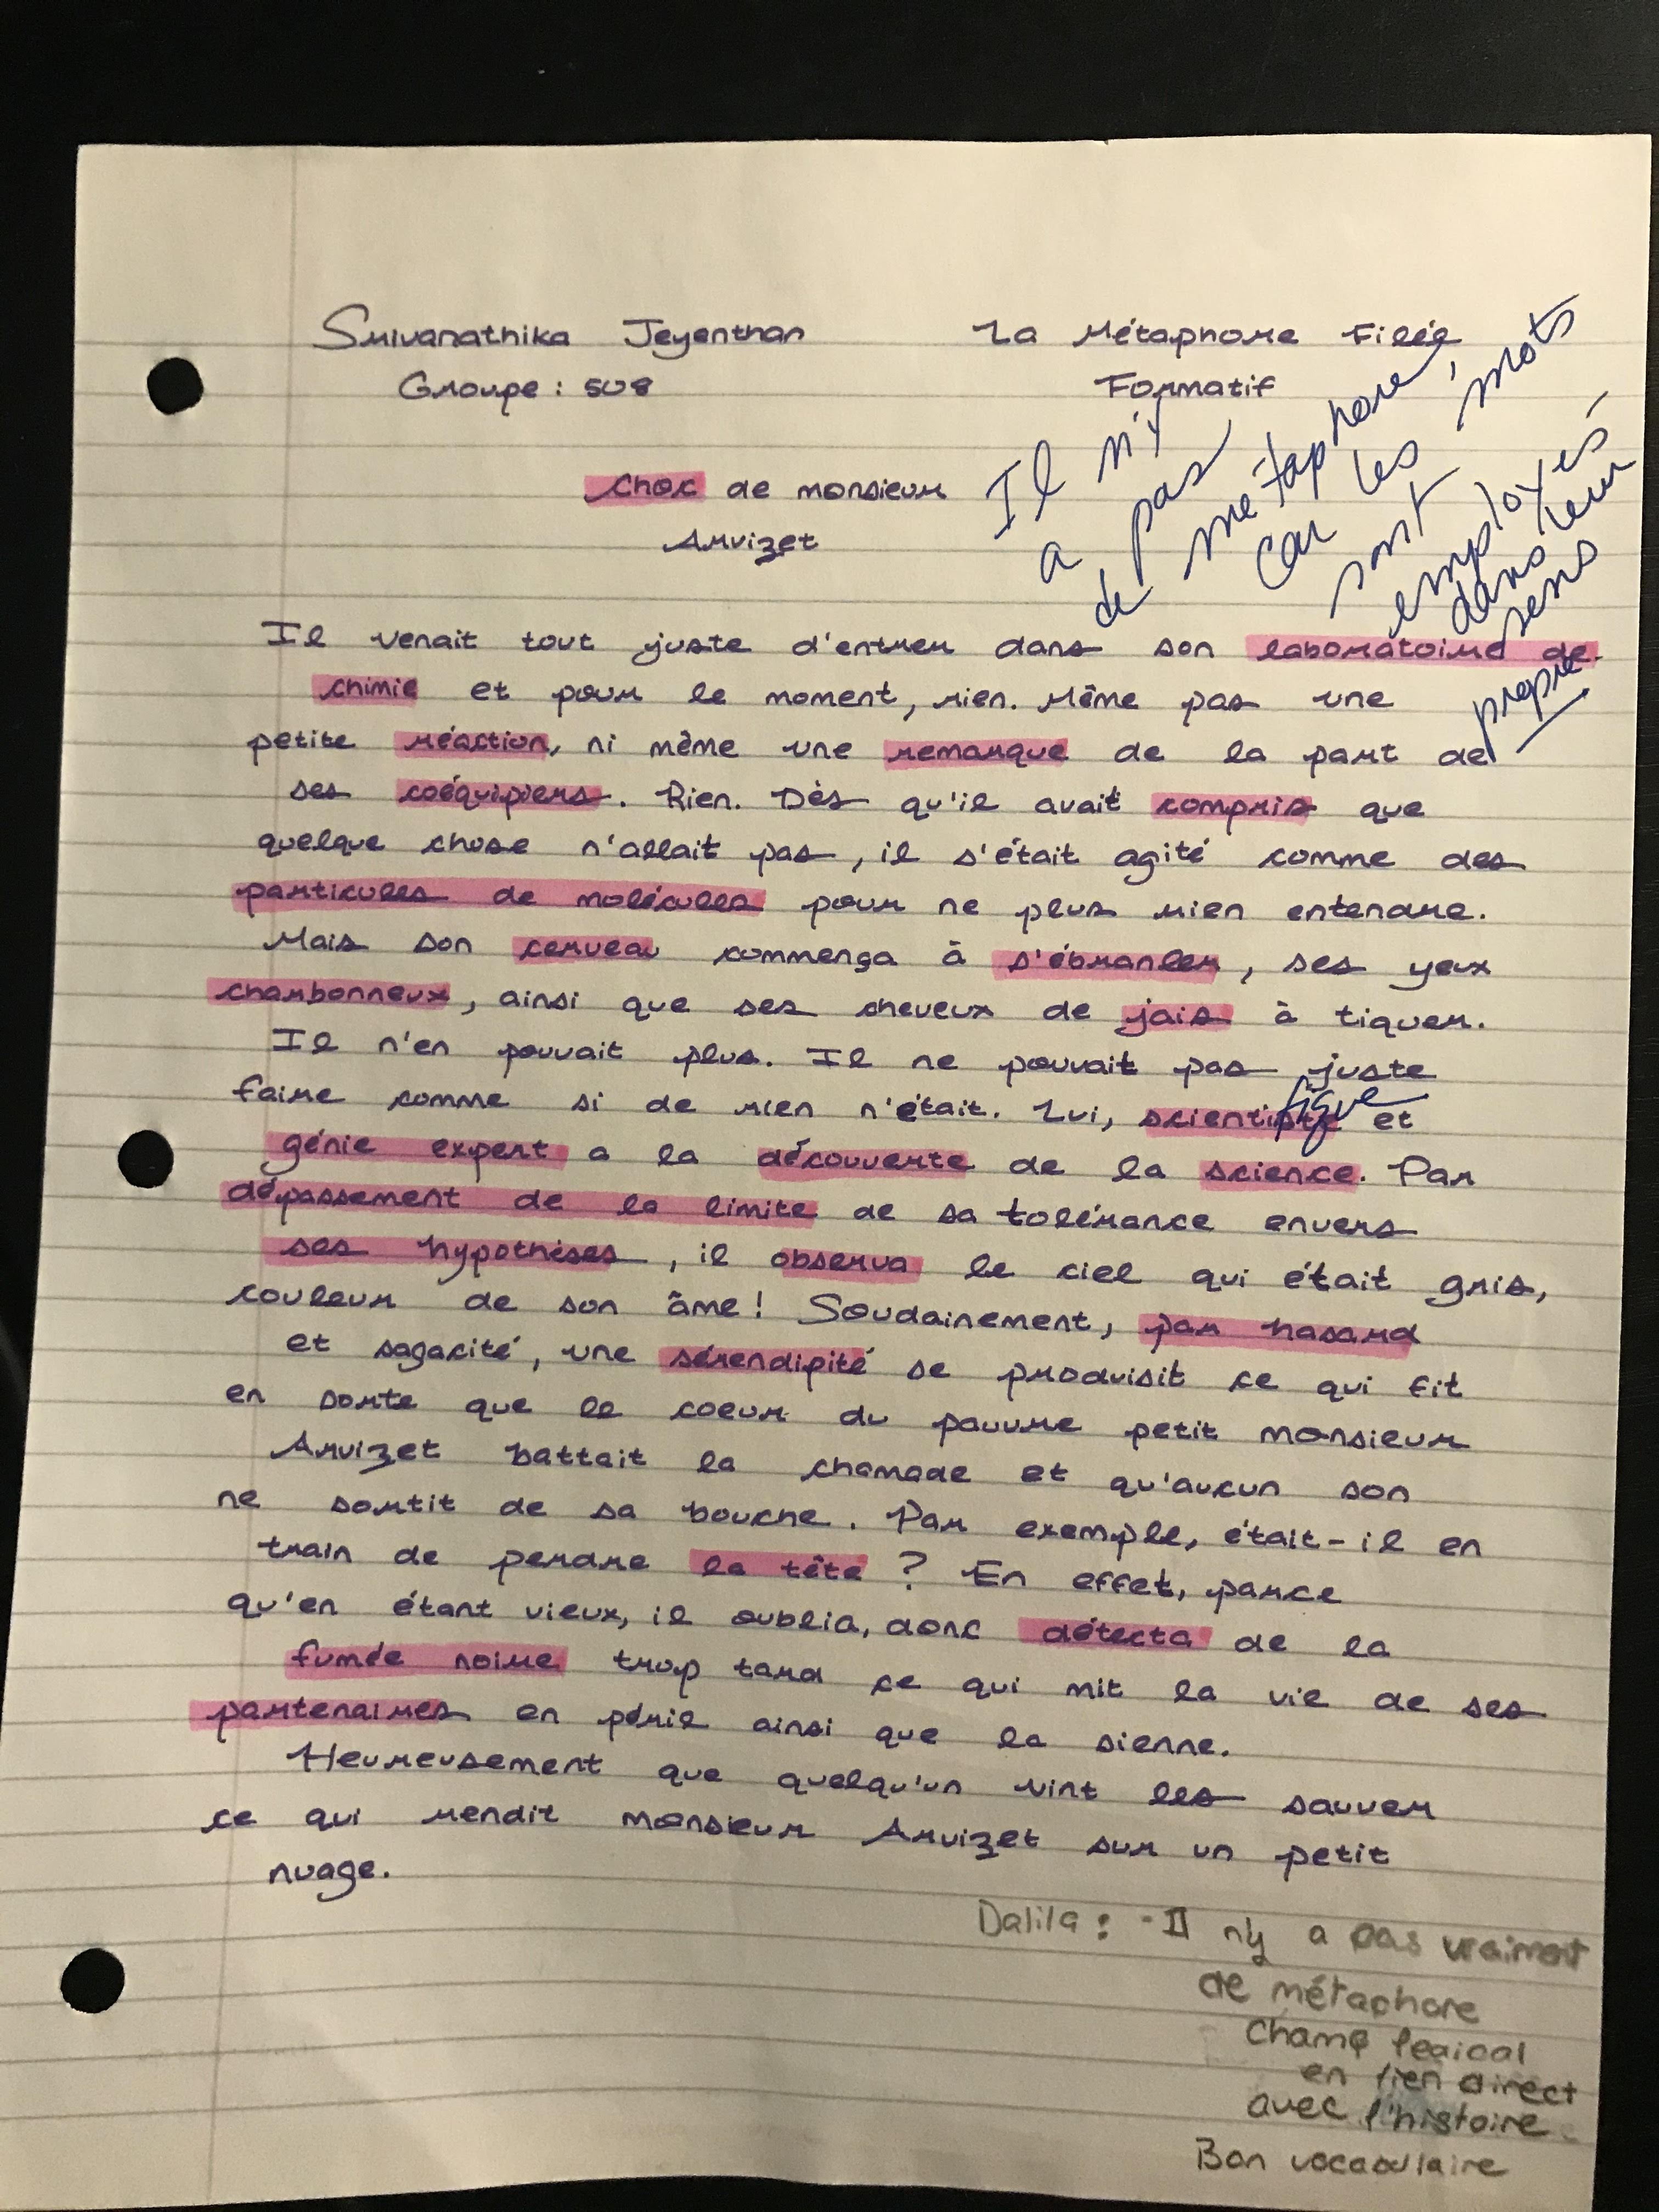 Srivarathika Jeyenthan
La Métaphore Filée
Groupe : 508
Formatif
Il n'y
a pas
de métaphore,
car les mots
sont
employés
dans leur
sens
propre
Choc de monsieur
Arvizet
Il venait tout juste d'entrer dans son laboratoire de
chimie et pour le moment, rien. Même pas une
petite réaction, ni même une remarque de la part de
ses coéquipiers. Rien. Dès qu'il avait compris que
quelque chose n'allait pas, il s'était agité comme des
particules de molécules pour ne plus rien entendre.
Mais son cerveau commença à s'ébranler, ses yeux
charbonneux, ainsi que ses cheveux de jais à tiquer.
Il n'en pouvait plus. Il ne pouvait pas juste
faire comme si de rien n'était. Lui, scientiste et
fique
génie expert a la découverte de la science. Par
dépassement de la limite de sa tolérance envers
ses hypothèses, il observa le ciel qui était gris,
couleur de son âme! Soudainement, par hasard
et sagacité, une sérendipité se produisit ce qui fit
en sorte que le coeur du pauvre petit monsieur
Arvizet battait la chamade et qu'aucun son
ne sortit de sa bouche. Par exemple, était-il en
train de perdre la tête ? En effet, parce
qu'en étant vieux, il oublia, donc détecta de la
fumée noire trop tard ce qui mit la vie de ses
partenaires en péril ainsi que la sienne.
Heureusement que quelqu'un vint les sauver
ce qui rendit monsieur Arvizet sur un petit
nuage.
Dalila : - Il n'y a pas vraiment
de métaphore
Champ lexical
en lien direct
avec l'histoire
Bon vocabulaire